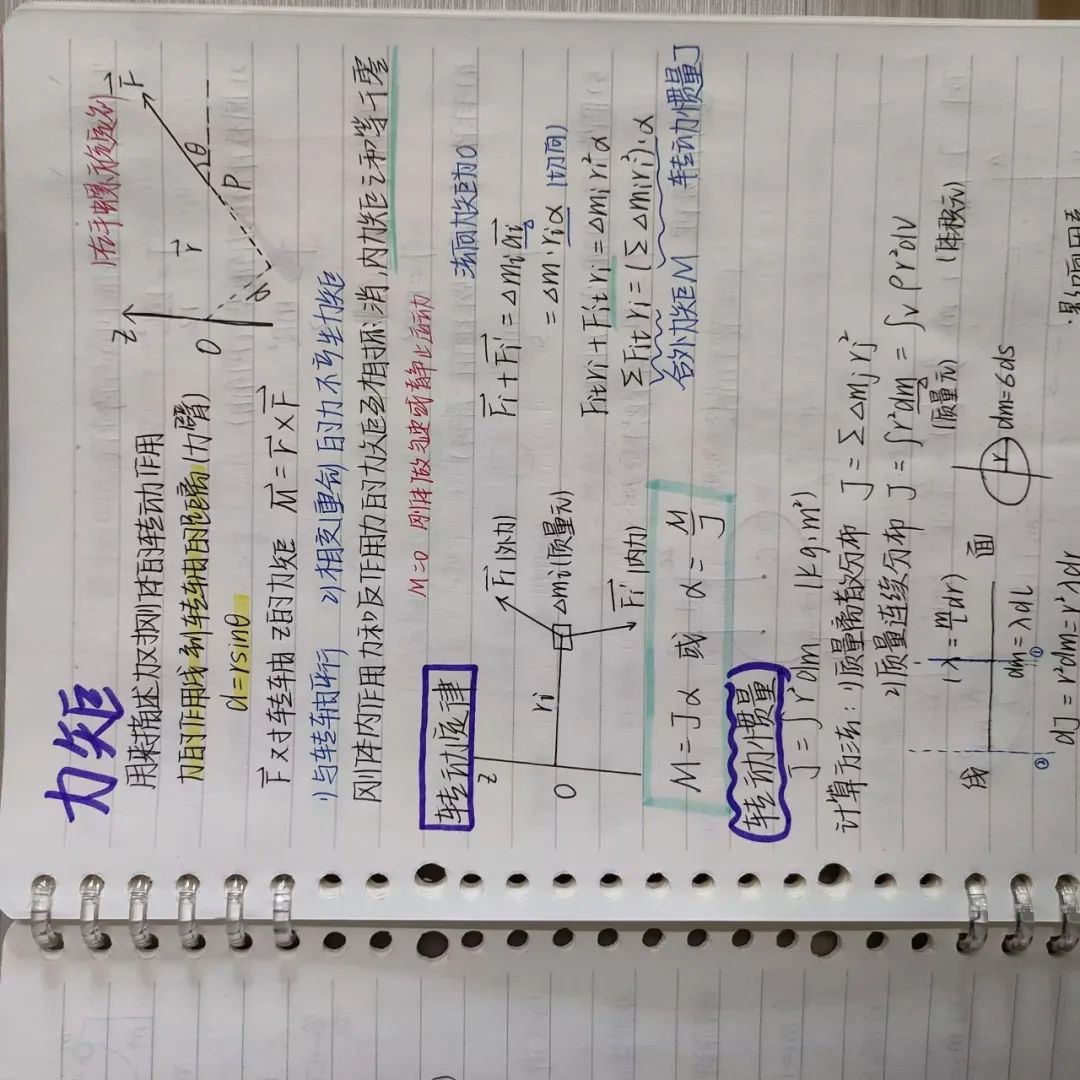 力矩
用来描述力对刚体的转动作用 (右手螺旋定则)
力的作用线到转轴的距离(力臂)
d=rsinθ
Z r F θ P d O
F对转轴Z的力矩 M=r×F
1)与转轴平行 2)相交(重合)的力不产生力矩
刚体内作用力和反作用力的力矩互相抵消,内力矩之和等于零
M=0 刚体做匀速或静止运动
转动定律
Z O ri Fi(外力) Δmi(质量元) Fi'(内力)
法向力矩为0
Fi+Fi'=Δmiai
=Δm·riα (切向)
Fitri+Fit'ri=Δmiri²α
ΣFitri=(ΣΔmiri²)·α
合外力矩M 转动惯量J
M=Jα 或 α=M/J
转动惯量
J=∫r²dm (kg·m²)
计算方法:1)质量离散分布 J=ΣΔmjrj²
2)质量连续分布 J=∫r²dm=∫vρr²dV
(质量元) (体积元)
线 (λ=m/dr) 面
dm=λdL r dm=6ds
② ①
dJ=r²dm=r²λdr
影响因素